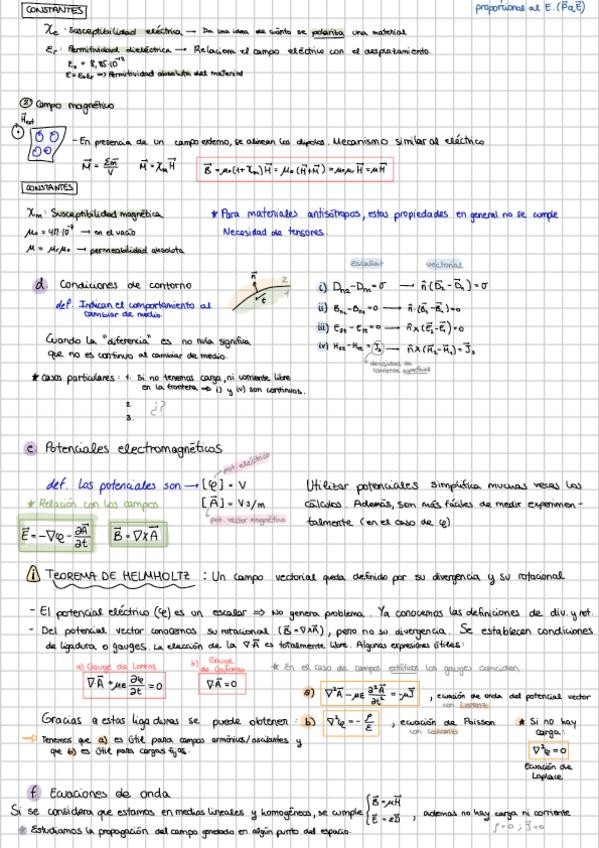 proporcional al E. (P α E)
CONSTANTES
χe: Susceptibilidad eléctrica → Da una idea de cuánto se polariza una material
εr: Permitividad dieléctrica → Relaciona el campo eléctrico con el desplazamiento.
ε₀ = 8,85·10⁻¹²
ε = ε₀εr ⇒ Permitividad absoluta del material
② Campo magnético
H⃗ext
- En presencia de un campo externo, se alinean los dipolos. Mecanismo similar al eléctrico
M⃗ = Σm⃗/V M⃗ = χm H⃗ B⃗ = μ₀(1+χm)H⃗ = μ₀(H⃗+M⃗) = μ₀μr H⃗ = μH⃗
CONSTANTES
χm: Susceptibilidad magnética
μ₀ = 4π·10⁻⁷ → en el vacío
μ = μ₀μr → permeabilidad absoluta
* Para materiales anisótropos, estas propiedades en general no se cumple
Necesidad de tensores.
d. Condiciones de contorno
def. Indican el comportamiento al
cambiar de medio.
n⃗ 2
t 1
escalar vectorial
i) Dn2 - Dn1 = σ → n̂·(D⃗2 - D⃗1) = σ
ii) Bn2 - Bn1 = 0 → n̂·(B⃗2 - B⃗1) = 0
iii) Et2 - Et1 = 0 → n̂×(E⃗2 - E⃗1) = 0
iv) Ht2 - Ht1 = Js → n̂×(H⃗2 - H⃗1) = J⃗s
densidad de
corriente superficial
Cuando la "diferencia" es no nula significa
que no es continuo al cambiar de medio.
* Casos particulares: 1. Si no tenemos carga, ni corriente libre
en la frontera → i) y iv) son continuos.
2. ¿?
3.
e. Potenciales electromagnéticos
pot. eléctrico
def. Los potenciales son → [φ] = V
[A⃗] = Vs/m
pot. vector magnético
* Relación con los campos
E⃗ = -∇φ - ∂A⃗/∂t B⃗ = ∇×A⃗
Utilizar potenciales simplifica muchas veces los
cálculos. Además, son más fáciles de medir experimen-
talmente (en el caso de φ)
i TEOREMA DE HELMHOLTZ: Un campo vectorial queda definido por su divergencia y su rotacional
- El potencial eléctrico (φ) es un escalar ⇒ No genera problema. Ya conocemos las definiciones de div. y rot.
- Del potencial vector conocemos su rotacional (B⃗ = ∇×A⃗), pero no su divergencia. Se establecen condiciones
de ligadura o gauges. La elección de la ∇A⃗ es totalmente libre. Algunas expresiones útiles:
a) Gauge de Lorenz
∇A⃗ + με ∂φ/∂t = 0
b) Gauge
de Coulomb
∇A⃗ = 0
* En el caso de campos estáticos los gauges coinciden
Gracias a estas ligaduras se puede obtener:
a) ∇²A⃗ - με ∂²A⃗/∂t² = -μJ⃗, ecuación de onda del potencial vector
con Lorenz
b) ∇²φ = -ρ/ε, ecuación de Poisson
con Coulomb
* Si no hay
carga:
∇²φ = 0
Ecuación de
Laplace
→ Tenemos que a) es útil para campos armónicos/oscilantes y
que b) es útil para cargas fijas.
f. Ecuaciones de onda
Si se considera que estamos en medios lineales y homogéneos, se cumple { B⃗ = μH⃗ , además no hay carga ni corriente
E⃗ = εD⃗ ρ=0 ; J⃗=0
* Estudiamos la propagación del campo generado en algún punto del espacio.